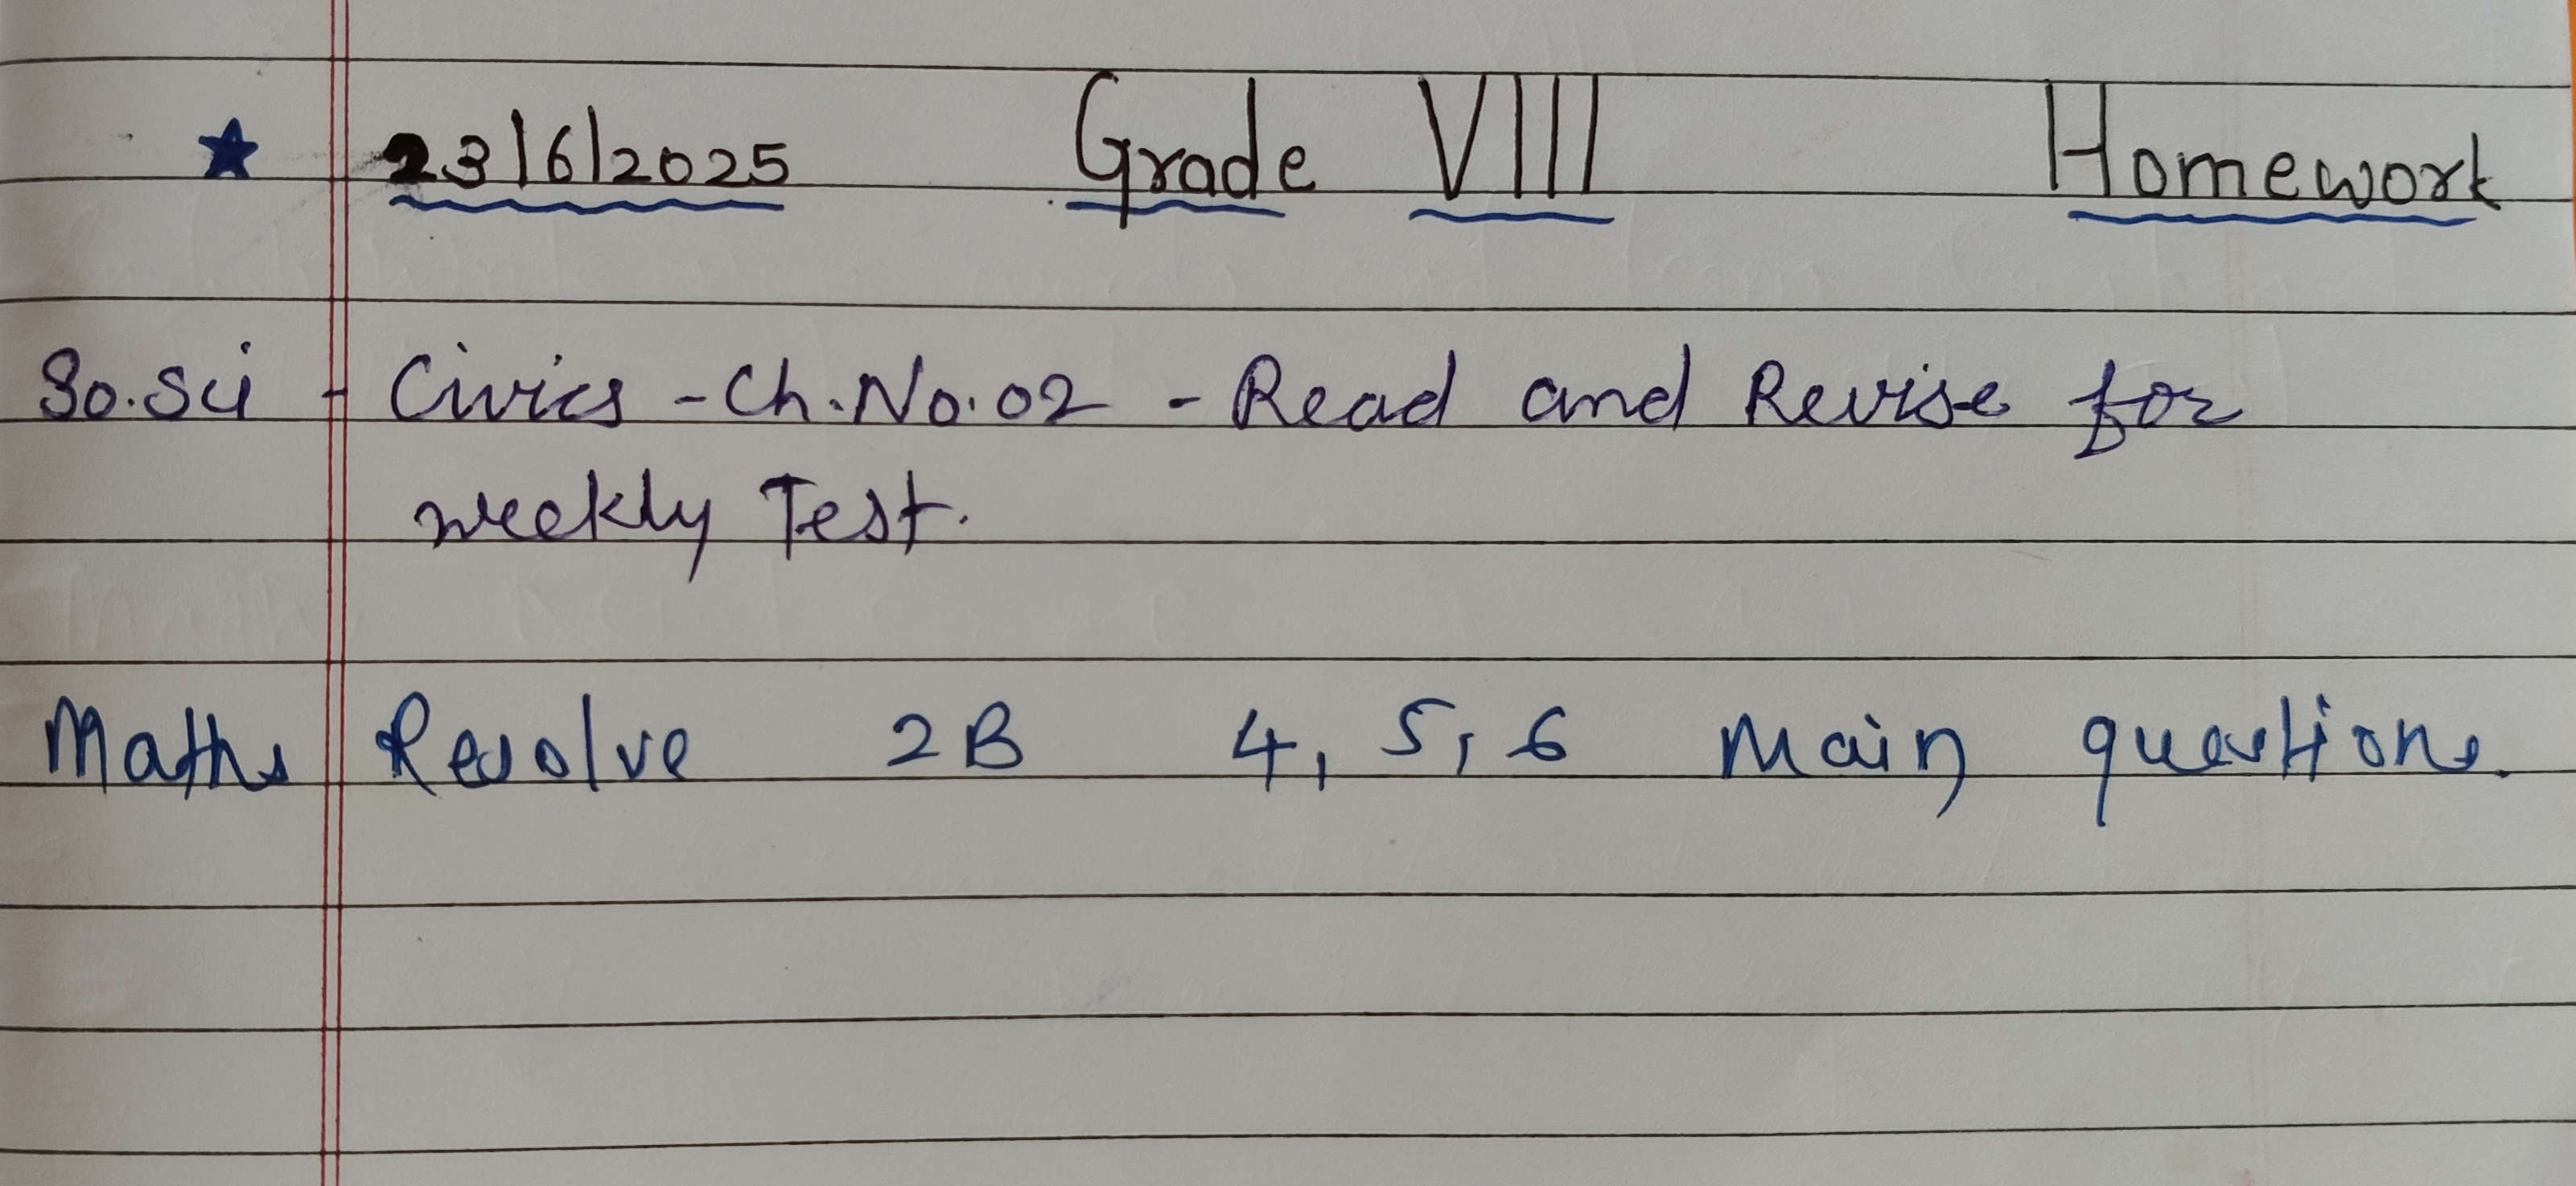 ★ 23/6/2025 Grade VIII Homework
So.Sci - Civics - Ch.No.02 - Read and Revise for
weekly Test.
Maths Resolve 2B 4, 5, 6 Main questions.